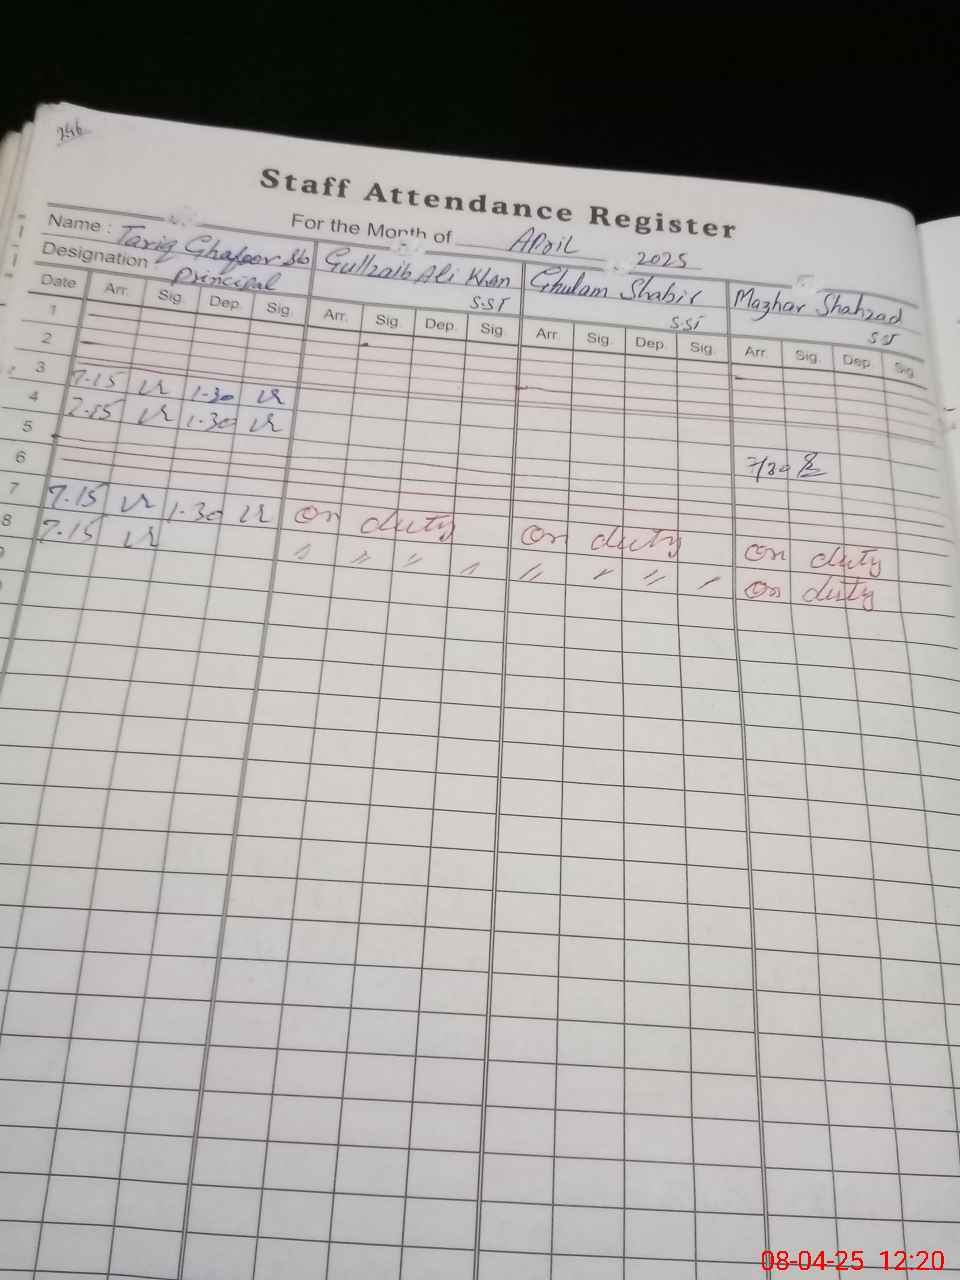 246
Staff Attendance Register
For the Month of April 2025
Name : Tariq Ghafoor Sb Gullzaib Ali Khan Ghulam Shabir Mazhar Shahzad
Designation Principal S.ST S.ST SST
Date Arr. Sig. Dep. Sig. Arr. Sig. Dep. Sig. Arr. Sig. Dep. Sig. Arr. Sig. Dep. Sig.
1
2
3 7.15 1.30
4 7.15 1.30
5
6 7/30
7 7.15 1.30 on duty on duty on duty
8 7.15 〃 〃 〃 〃 〃 〃 〃 〃 on duty
9
08-04-25 12:20